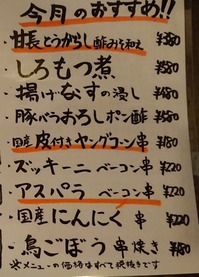 今月のおすすめ!!
・甘長とうがらし酢みそ和え ¥380
・しろもつ煮 ¥580
・揚げなすの浸し ¥480
・豚バラおろしポン酢 ¥580
・国産皮付きヤングコーン串 ¥180
・ズッキーニベーコン串 ¥220
・アスパラベーコン串 ¥220
・国産にんにく串 ¥220
・鳥ごぼう串焼き ¥180
※メニューの価格はすべて税抜きです